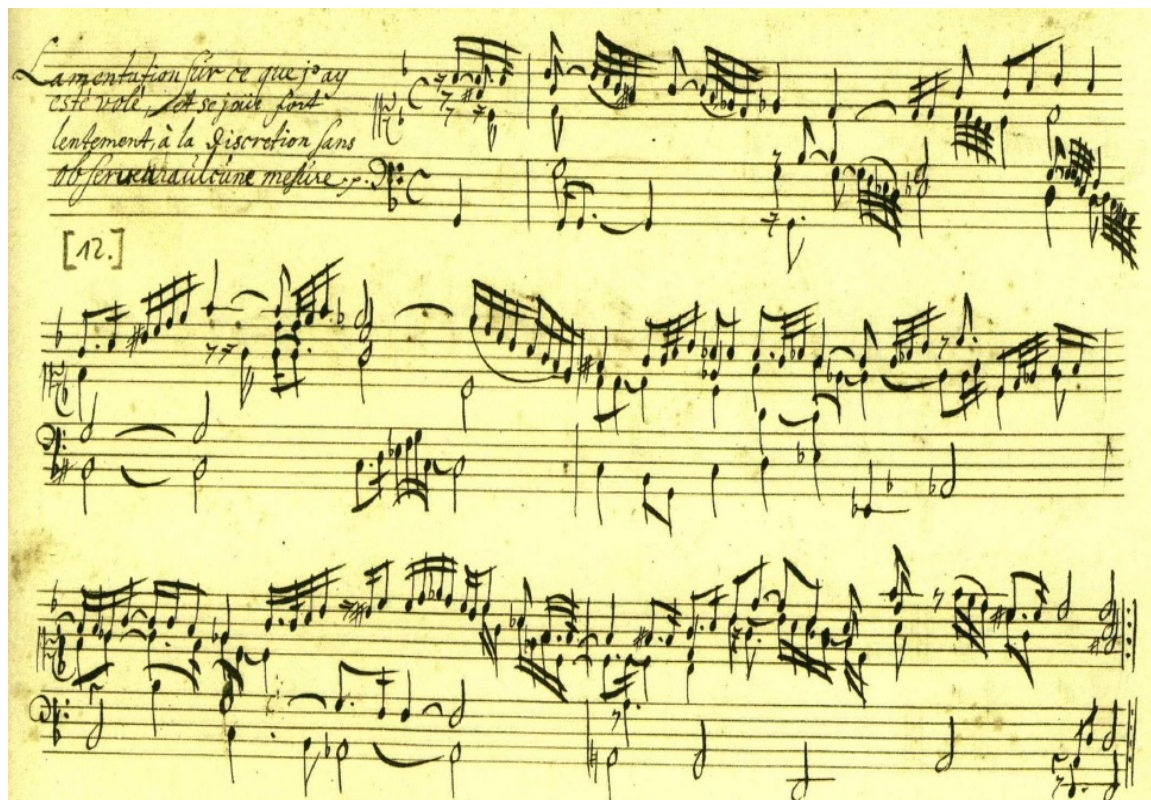 Lamentation sur ce que j'ay
esté volé, et se joüe fort
lentement, à la discretion sans
observer aulcune mesure
[12.]